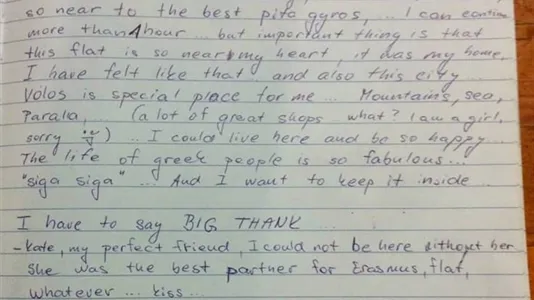 so near to the best pita gyros, ... I can continue
more than 1 hour ... but important thing is that
this flat is so near my heart, it was my home,
I have felt like that and also this city
Volos is special place for me ... Mountains, sea,
Paralia, ... (a lot of great shops - what? I am a girl,
sorry ) ... I could live here and be so happy ...
The life of greek people is so fabulous ...
"siga siga" ... And I want to keep it inside
I have to say BIG THANK
- Kate, my perfect friend, I could not be here without her
She was the best partner for Erasmus, flat,
whatever ... kiss ...